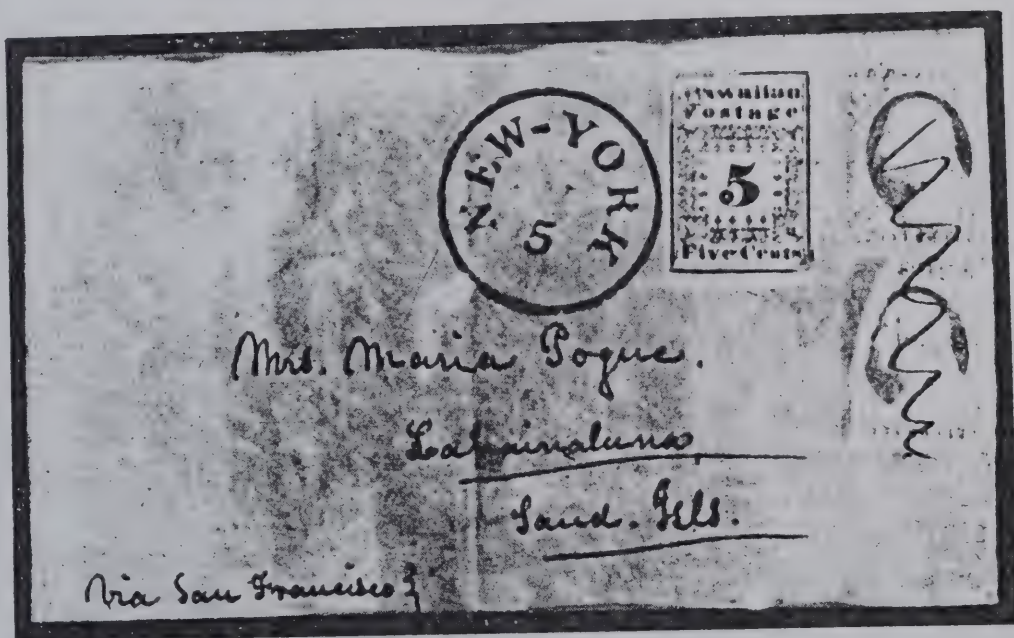 NEW-YORK
5
Hawaiian
Postage
5
Five Cents
Mrs. Maria Pogue.
Lahainaluna,
Sand. Isls.
Via San Francisco